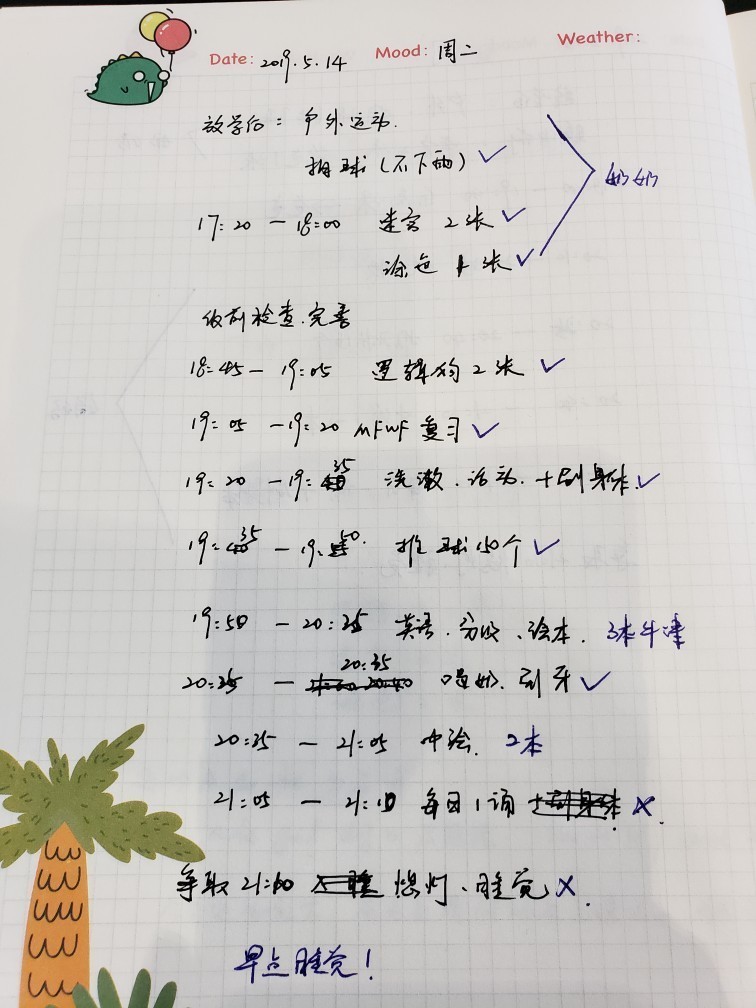 Date: 2019.5.14 Mood: 周二 Weather:
放学后: 户外运动.
拍球(不下雨) ✓
奶奶
17:20 — 18:00 迷宫 2张 ✓
涂色 1张 ✓
饭前检查.完善
18:45 — 19:05 逻辑狗 2张 ✓
19:05 — 19:20 MFWF 复习 ✓
19:20 — 19:35 洗漱.活动.+刮身体 ✓
19:35 — 19:50. 推球150个 ✓
19:50 — 20:25 英语.分级、绘本. 3本牛津
20:25 — 20:35 喝奶.刷牙 ✓
20:35 — 21:05 中绘. 2本
21:05 — 21:10 每日1诵 ×.
争取 21:10 熄灯、睡觉 ×.
早点睡觉!